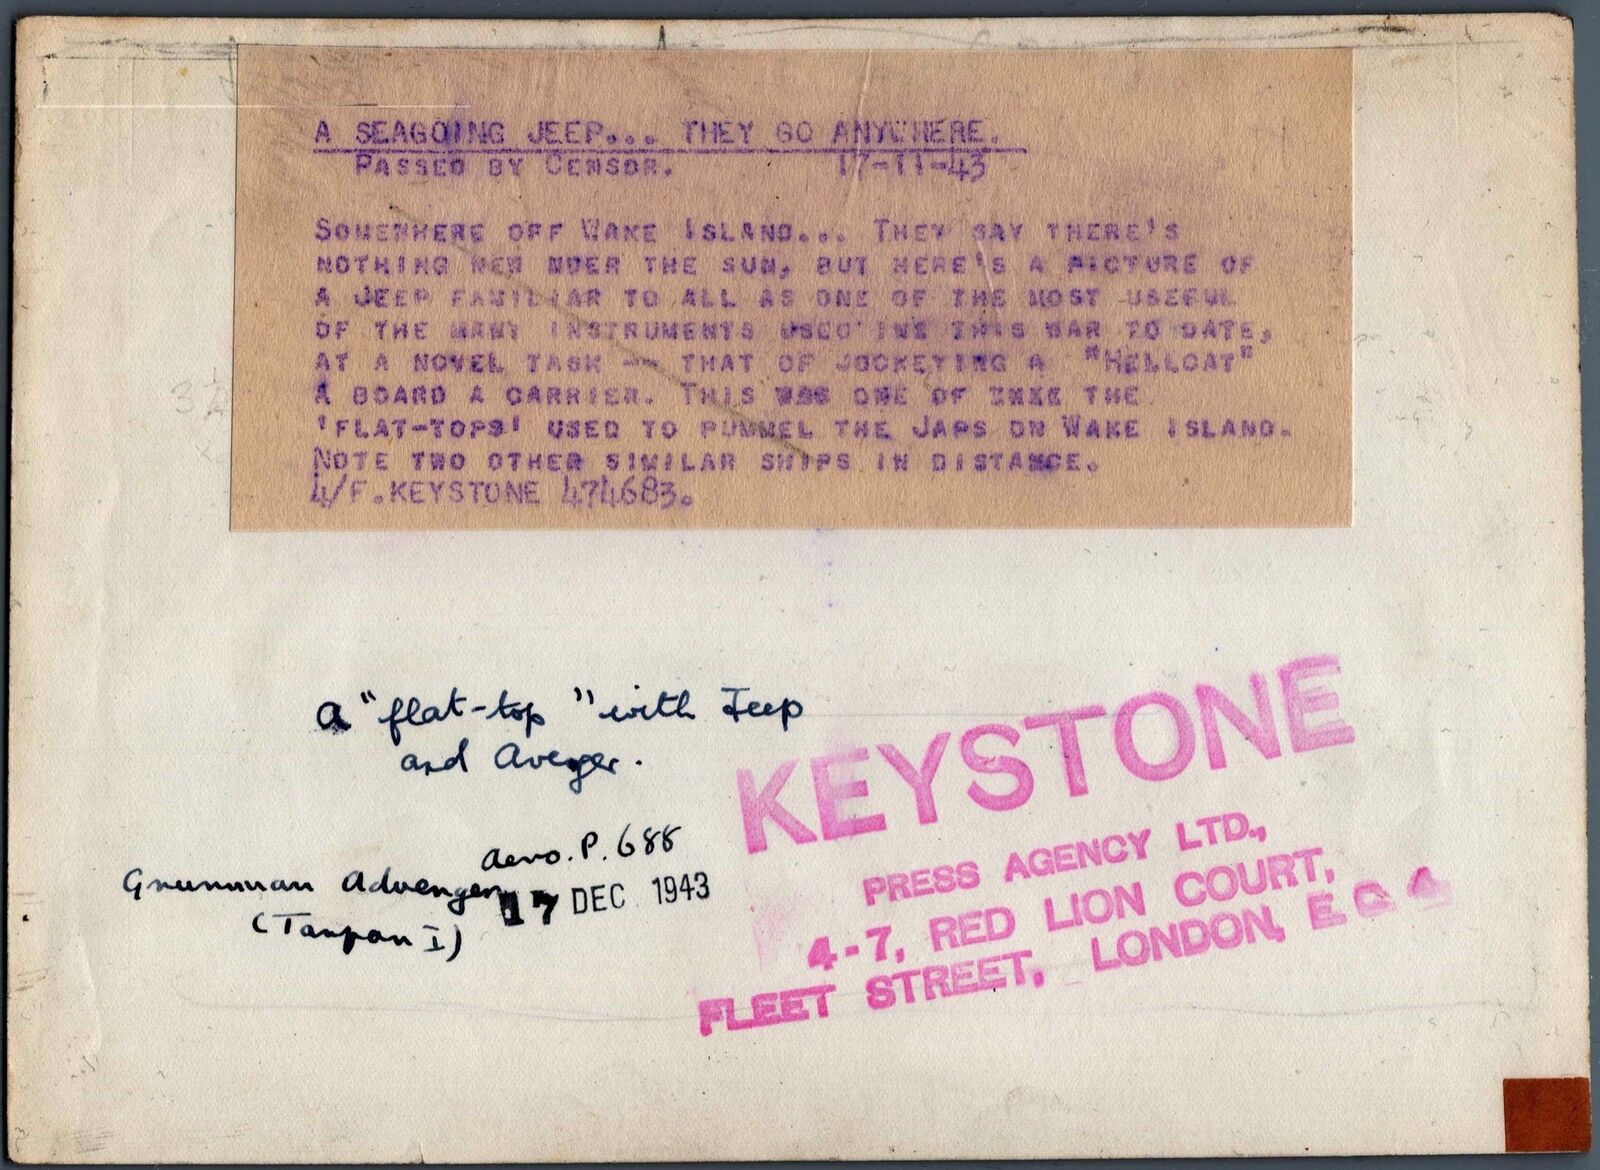 A SEAGOING JEEP... THEY GO ANYWHERE.
PASSED BY CENSOR. 17-11-43
SOMEWHERE OFF WAKE ISLAND... THEY SAY THERE'S
NOTHING NEW NDER THE SUN, BUT HERE'S A PICTURE OF
A JEEP FAMILIAR TO ALL AS ONE OF THE MOST USEFUL
OF THE MANY INSTRUMENTS USED THIS WAR TO DATE,
AT A NOVEL TASK -- THAT OF JOCKEYING A "HELLCAT"
A BOARD A CARRIER. THIS WAS ONE OF THE
'FLAT-TOPS' USED TO PUMMEL THE JAPS ON WAKE ISLAND.
NOTE TWO OTHER SIMILAR SHIPS IN DISTANCE.
4/F.KEYSTONE 474683.
A "flat-top" with Jeep
and Avenger.
Aero. P. 688
Grumman Advenger
17 DEC 1943
(Tarpon I)
KEYSTONE
PRESS AGENCY LTD.,
4-7, RED LION COURT,
FLEET STREET, LONDON, E.C.4